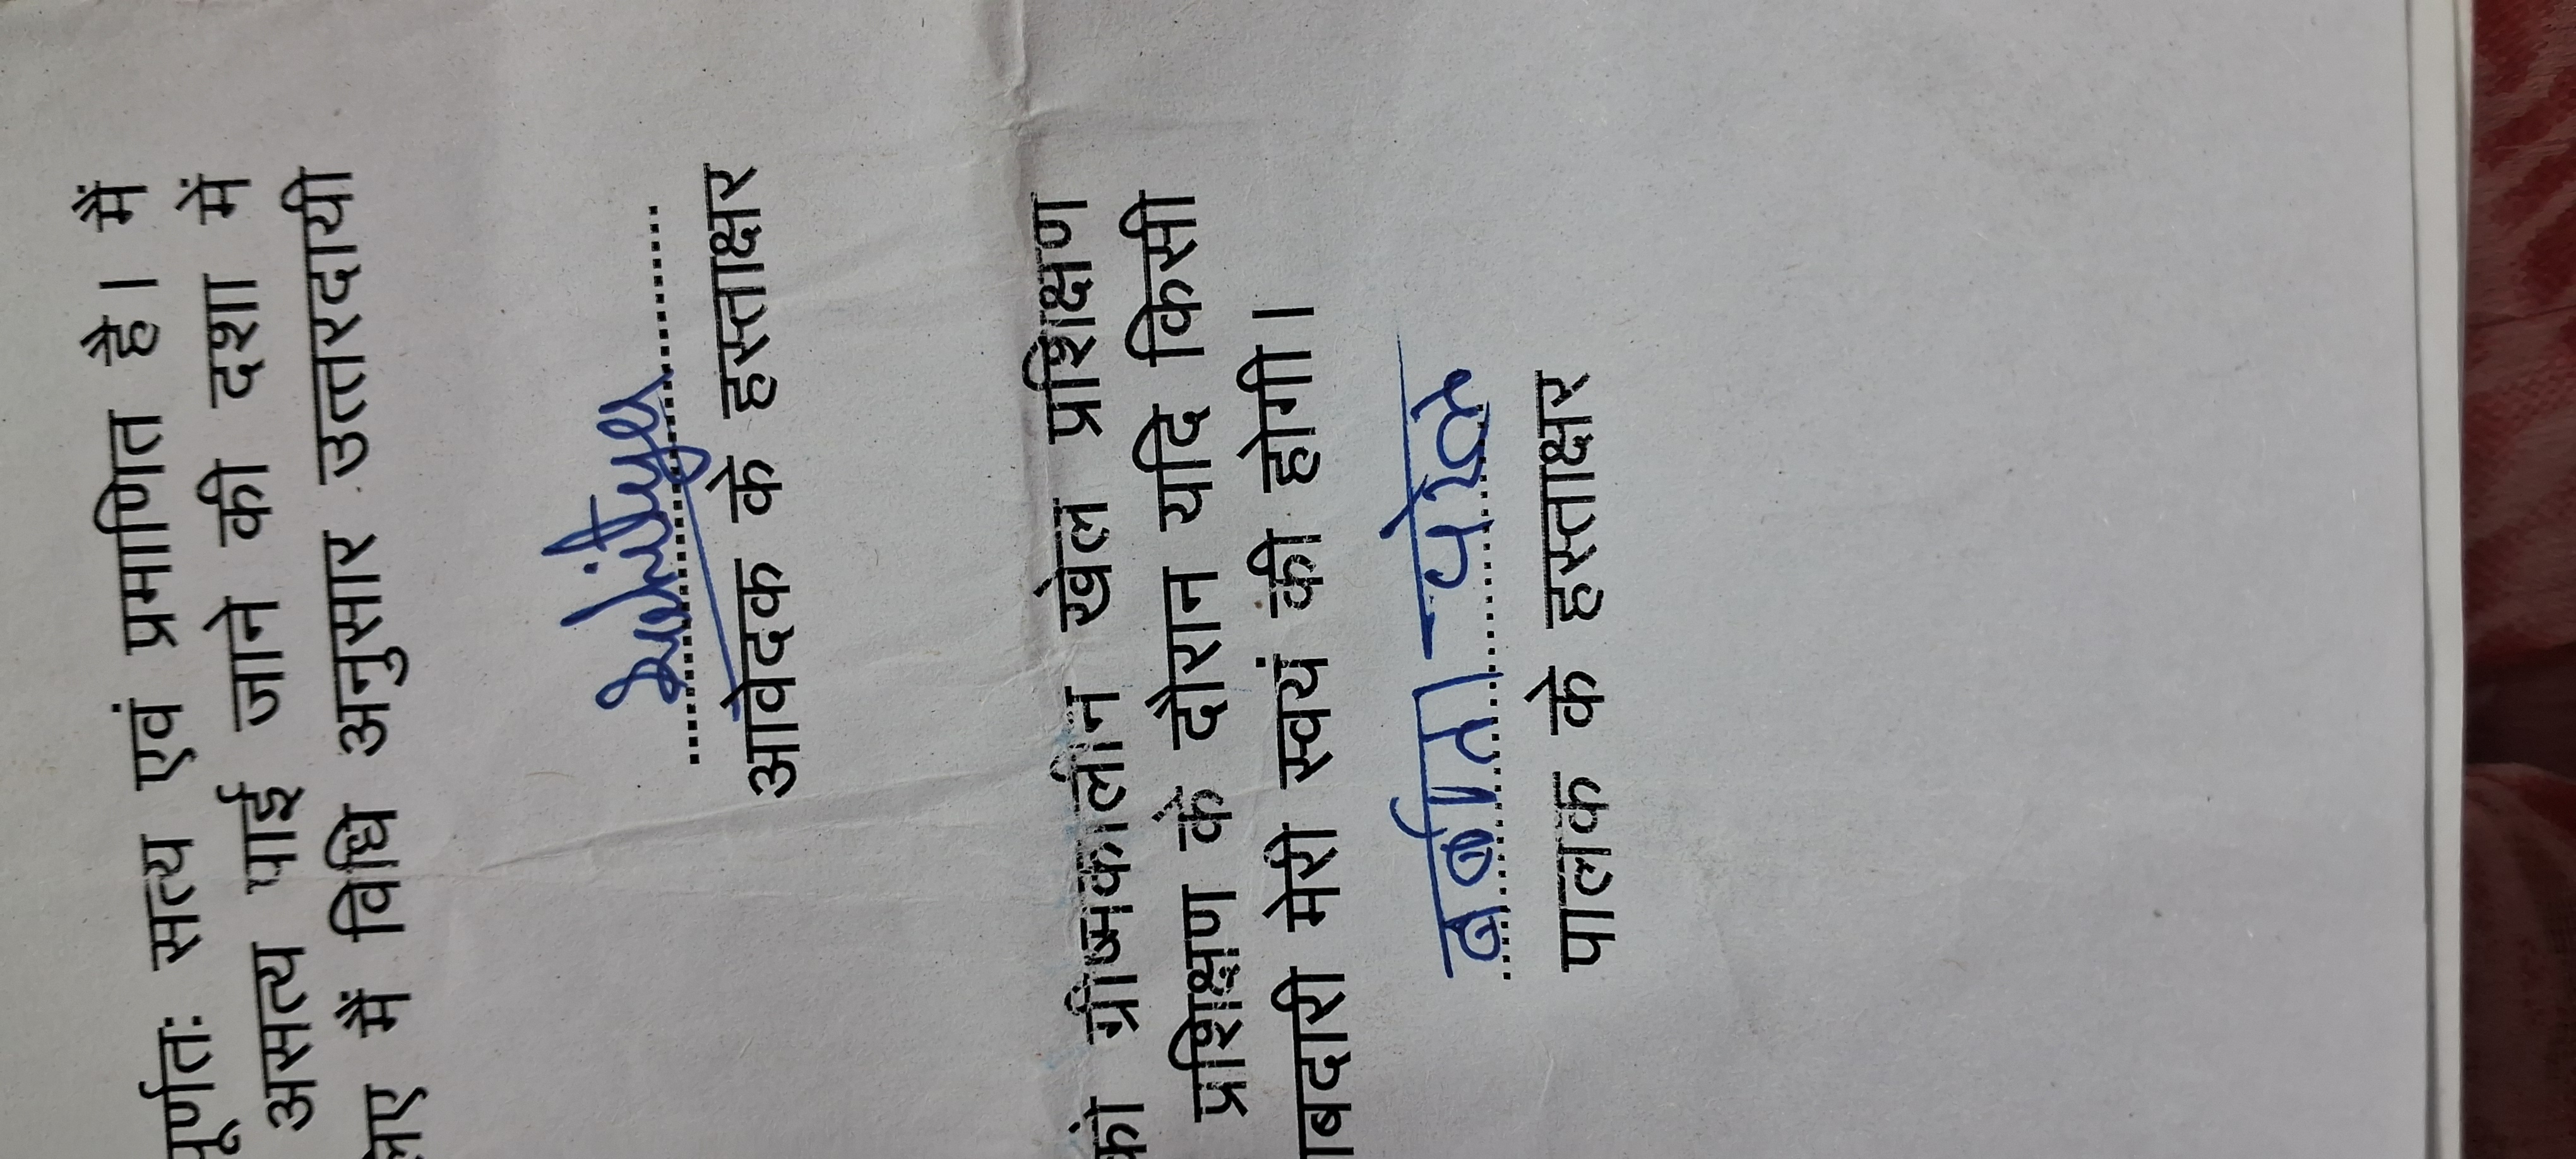 पूर्णतः सत्य एवं प्रमाणित है। मैं
असत्य पाई जाने की दशा में
लिए मैं विधि अनुसार उत्तरदायी
आवेदक के हस्ताक्षर
को ग्रीष्मकालीन खेल प्रशिक्षण
प्रशिक्षण के दौरान यदि किसी
ाबदारी मेरी स्वयं की होगी।
बबीता
पालक के हस्ताक्षर